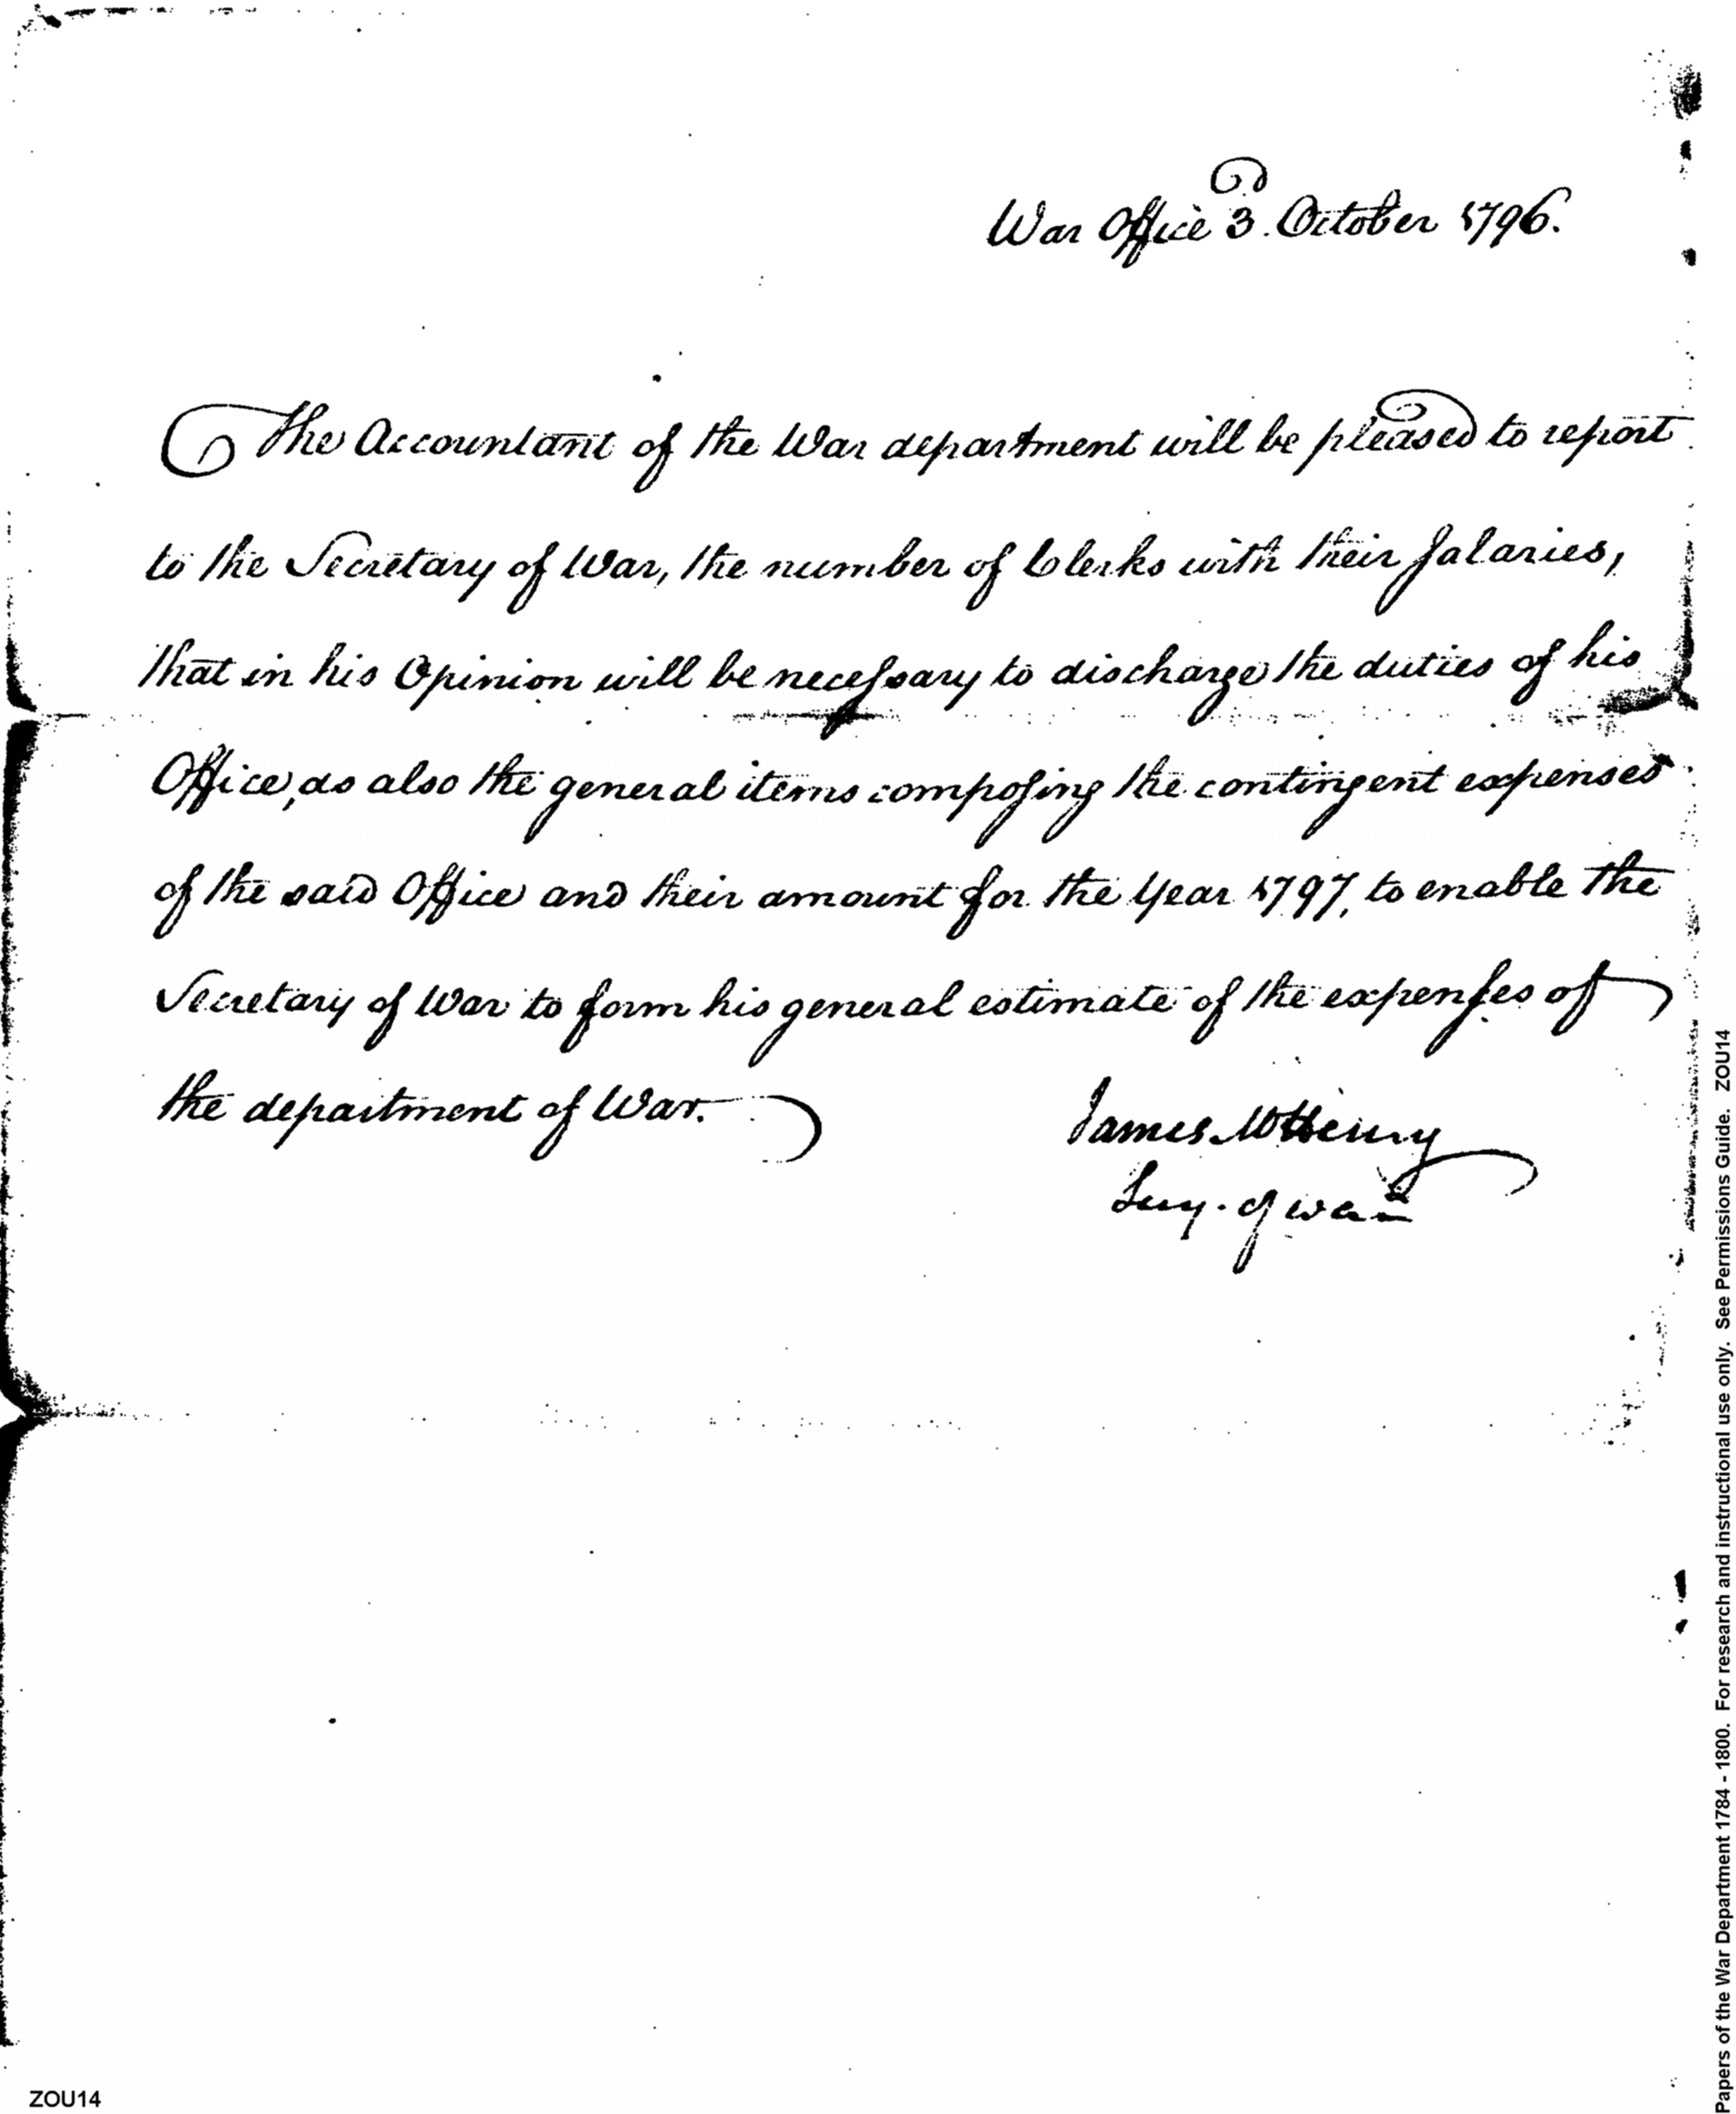 War Office 3d. October 1796.
The Accountant of the War department will be pleased to report
to the Secretary of War, the number of Clerks with their Salaries,
that in his Opinion will be necessary to discharge the duties of his
Office, as also the general items composing the contingent expenses
of the said Office and their amount for the Year 1797, to enable the
Secretary of War to form his general estimate of the expenses of
the department of War.
James McHenry
Secy. of war
ZOU14
Papers of the War Department 1784 - 1800. For research and instructional use only. See Permissions Guide. ZOU14